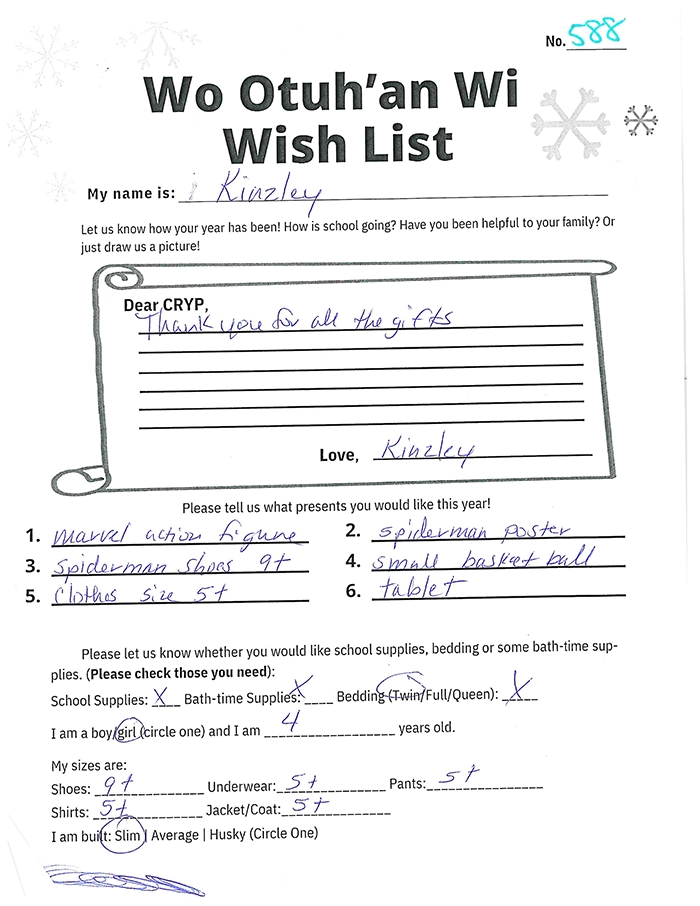 No. 588
Wo Otuh'an Wi
Wish List
My name is: Kinzley
Let us know how your year has been! How is school going? Have you been helpful to your family? Or
just draw us a picture!
Dear CRYP,
Thank you for all the gifts
Love, Kinzley
Please tell us what presents you would like this year!
1. marvel action figure 2. spiderman poster
3. Spiderman shoes 9t 4. small basket ball
5. Clothes size 5t 6. tablet
Please let us know whether you would like school supplies, bedding or some bath-time sup-
plies. (Please check those you need):
School Supplies: X Bath-time Supplies: X Bedding (Twin/Full/Queen): X
I am a boy/girl (circle one) and I am 4 years old.
My sizes are:
Shoes: 9t Underwear: 5t Pants: 5t
Shirts: 5t Jacket/Coat: 5t
I am built: Slim | Average | Husky (Circle One)